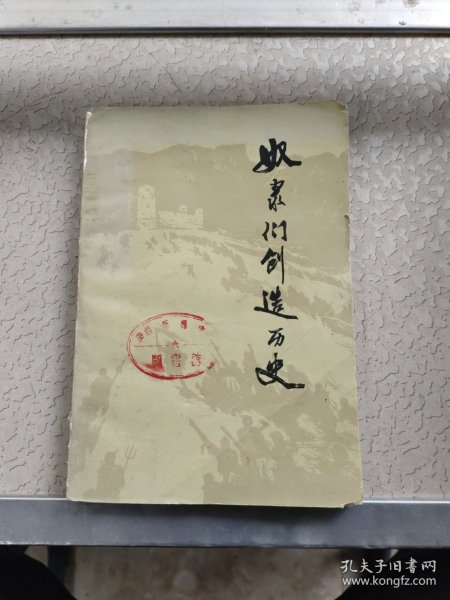 奴隶们创造历史
图书馆
孔夫子旧书网
www.kongfz.com